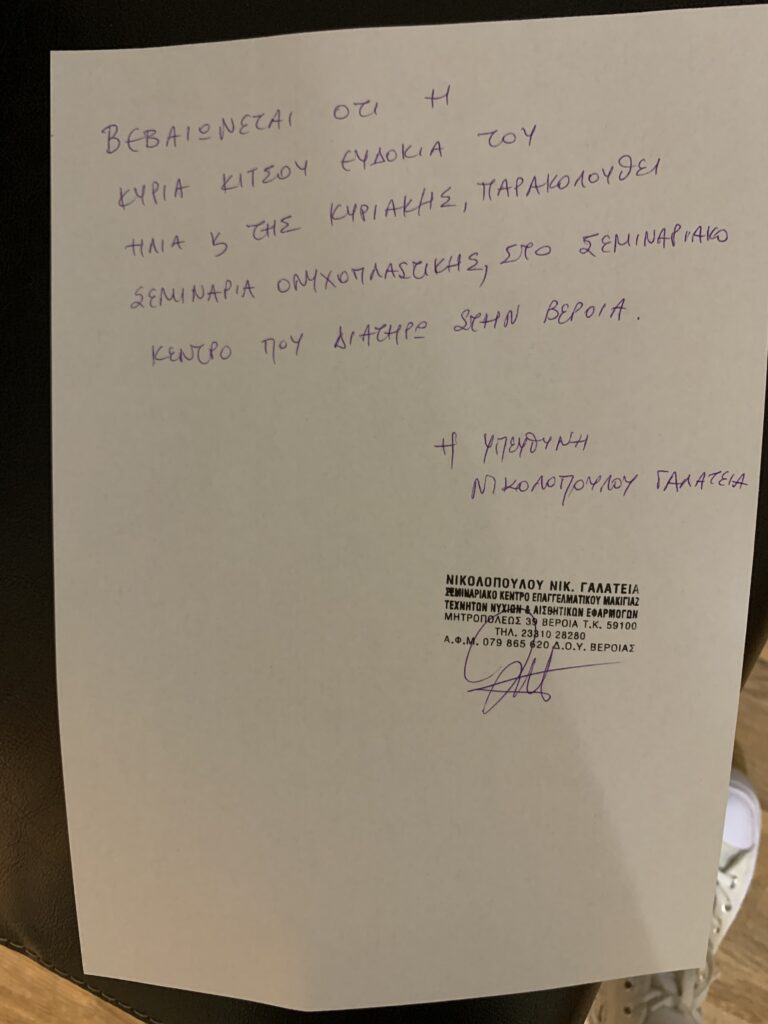 ΒΕΒΑΙΩΝΕΤΑΙ ΟΤΙ Η
ΚΥΡΙΑ ΚΙΤΣΟΥ ΕΥΔΟΚΙΑ ΤΟΥ
ΗΛΙΑ ϗ ΤΗΣ ΚΥΡΙΑΚΗΣ, ΠΑΡΑΚΟΛΟΥΘΕΙ
ΣΕΜΙΝΑΡΙΑ ΟΝΥΧΟΠΛΑΣΤΙΚΗΣ, ΣΤΟ ΣΕΜΙΝΑΡΙΑΚΟ
ΚΕΝΤΡΟ ΠΟΥ ΔΙΑΤΗΡΩ ΣΤΗΝ ΒΕΡΟΙΑ.
Η ΥΠΕΥΘΥΝΗ
ΝΙΚΟΛΟΠΟΥΛΟΥ ΓΑΛΑΤΕΙΑ
ΝΙΚΟΛΟΠΟΥΛΟΥ ΝΙΚ. ΓΑΛΑΤΕΙΑ
ΣΕΜΙΝΑΡΙΑΚΟ ΚΕΝΤΡΟ ΕΠΑΓΓΕΛΜΑΤΙΚΟΥ ΜΑΚΙΓΙΑΖ
ΤΕΧΝΗΤΩΝ ΝΥΧΙΩΝ & ΑΙΣΘΗΤΙΚΩΝ ΕΦΑΡΜΟΓΩΝ
ΜΗΤΡΟΠΟΛΕΩΣ 39 ΒΕΡΟΙΑ Τ.Κ. 59100
ΤΗΛ. 23310 28280
Α.Φ.Μ. 079 865 620 Δ.Ο.Υ. ΒΕΡΟΙΑΣ